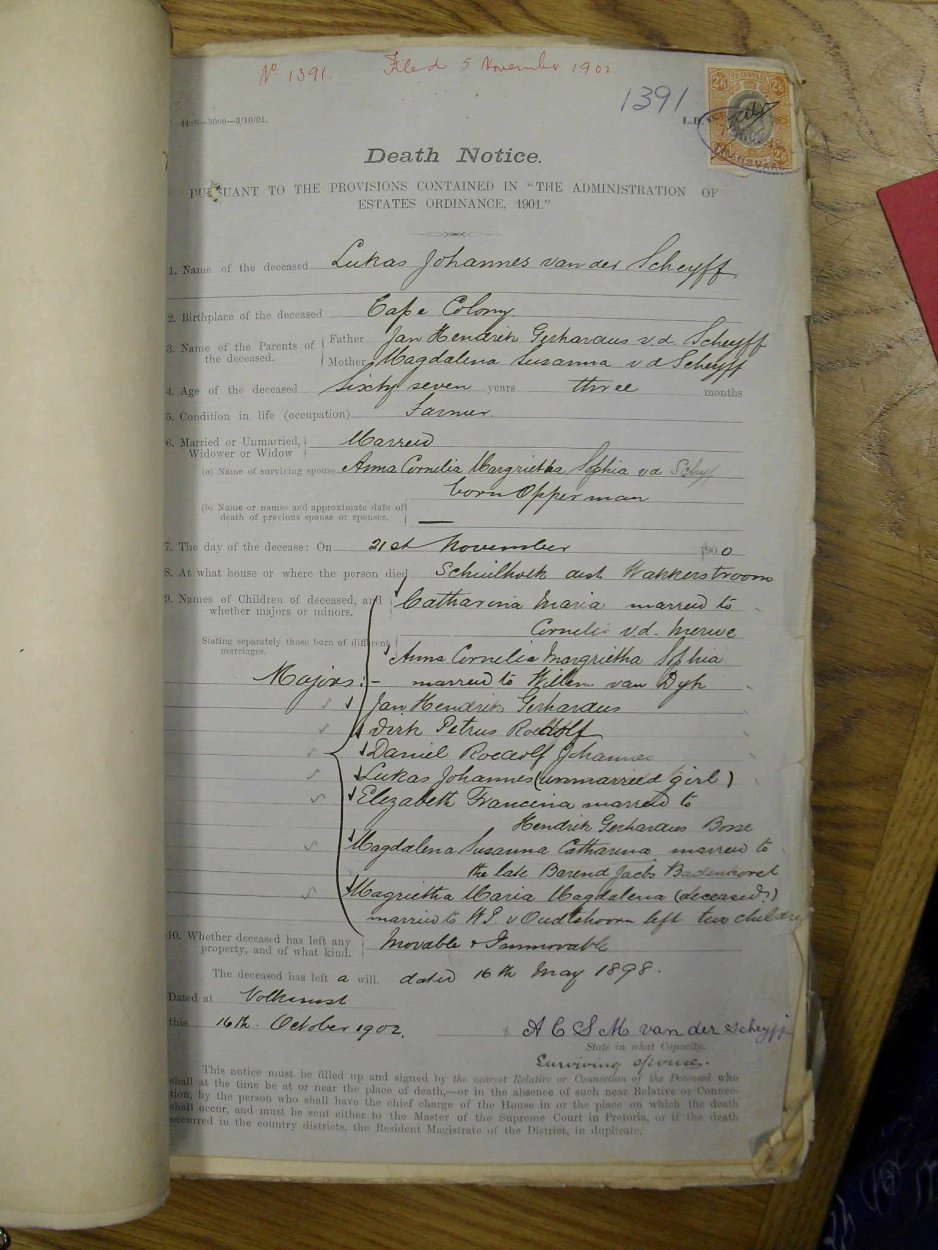 No 1391. Filed 5 November 1902.
1391
4486—3000—3/10/01.
TRANSVAAL
2/6 2/6
2/6
Death Notice.
PURSUANT TO THE PROVISIONS CONTAINED IN "THE ADMINISTRATION OF
ESTATES ORDINANCE, 1901."
1. Name of the deceased Lukas Johannes van der Scheyff
2. Birthplace of the deceased Cape Colony.
3. Name of the Parents of the deceased. Father Jan Hendrik Gerhardus v.d. Scheyff
Mother Magdalena Susanna v d Scheyff
4. Age of the deceased Sixty seven years three months
5. Condition in life (occupation) Farmer.
6. Married or Unmarried, Widower or Widow Married
(a) Name of surviving spouse Anna Cornelia Margrietha Sophia v d Schyf
born Opperman
(b) Name or names and approximate date of death of previous spouse or spouses. —
7. The day of the decease: On 21st November 1900
8. At what house or where the person died Wakkerstroom
9. Names of Children of deceased, and whether majors or minors. Catharina Maria married to
Cornelis v.d. Merwe
Stating separately those born of different marriages. Anna Cornelia Margrietha Sophia
Majors:- married to Willem van Dyk
Jan Hendrik Gerhardus
Dirk Petrus Roedolf
Daniel Roedolf Johannes
Lukas Johannes (unmarried girl)
Elizabeth Francina married to
Hendrik Gerhardus Bosse
Magdalena Susanna Catharina married to
the late Barend Jacbs Badenhorst
Magrietha Maria Magdalena (deceased)
married to W.P. v Oudtshoorn left two children
10. Whether deceased has left any property, and of what kind. Movable & Immovable
The deceased has left a will. dated 16th May 1898.
Dated at Volksrust
this 16th. October 1902. x A C S M van der Scheyff
State in what Capacity.
Surviving spouse.
This notice must be filled up and signed by the nearest Relative or Connection of the Deceased who
shall at the time be at or near the place of death,—or in the absence of such near Relative or Connec-
tion, by the person who shall have the chief charge of the House in or the place on which the death
shall occur, and must be sent either to the Master of the Supreme Court in Pretoria, or if the death
occurred in the country districts, the Resident Magistrate of the District, in duplicate.